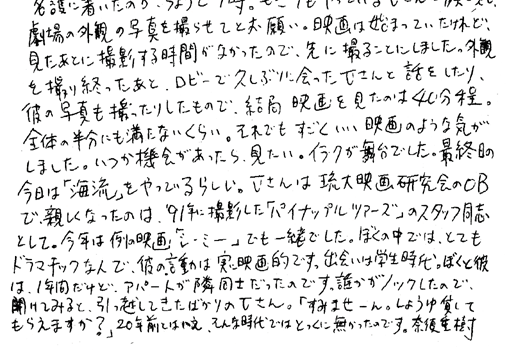 名護に着いたのが、ちょうど
劇場の外観の写真を撮らせてとお願い。映画は始まっていたけれど、
見たあとに撮影する時間がなかったので、先に撮ることにしました。外観
を撮り終ったあと、ロビーで久しぶりに会ったTさんと話をしたり、
彼の写真も撮ったりしたもので、結局映画を見たのは40分程。
全体の半分にも満たないくらい。それでもすごくいい映画のような気が
しました。いつか機会があったら、見たい。イラクが舞台でした。最終日の
今日は「海流」をやってるらしい。Tさんは琉大映画研究会のOB
で、親しくなったのは、'91年に撮影した「パイナップルツアーズ」のスタッフ同志
として。今年は例の映画「シーミー」でも一緒でした。ぼくの中では、とても
ドラマチックなんで、彼の言動は実に映画的です。出会いは学生時代。ぼくと彼
は、1年間だけど、アパートが隣同士だったのです。誰かがノックしたので、
開けてみると、引っ越してきたばかりのTさん。「すみませーん。しょうゆ貸して
もらえますか?」20年前とはいえ、そんな時代ではとっくに無かったのです。奈須重樹